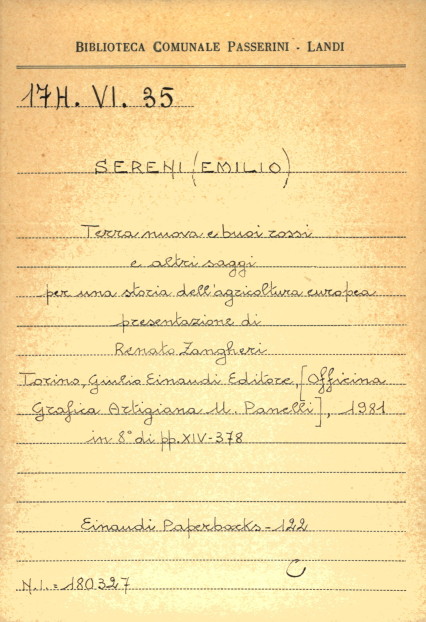 BIBLIOTECA COMUNALE PASSERINI - LANDI
17H. VI. 35
SERENI (EMILIO)
Terra nuova e buoi rossi
e altri saggi
per una storia dell'agricoltura europea
presentazione di
Renato Zangheri
Torino, Giulio Einaudi Editore, [Officina
Grafica Artigiana U. Panelli], 1981
in 8° di pp. XIV-378
Einaudi Paperbacks - 122
C
N.I. = 180327